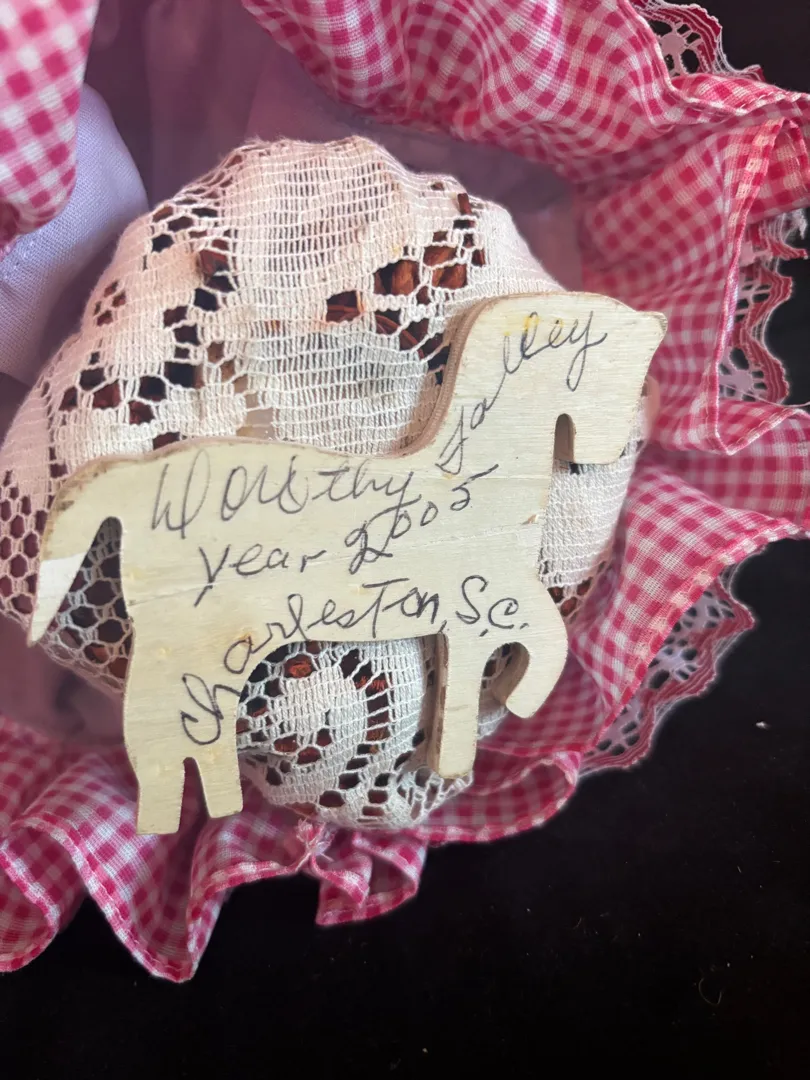 Dorothy Talley
year 2005
Charleston, S.C.